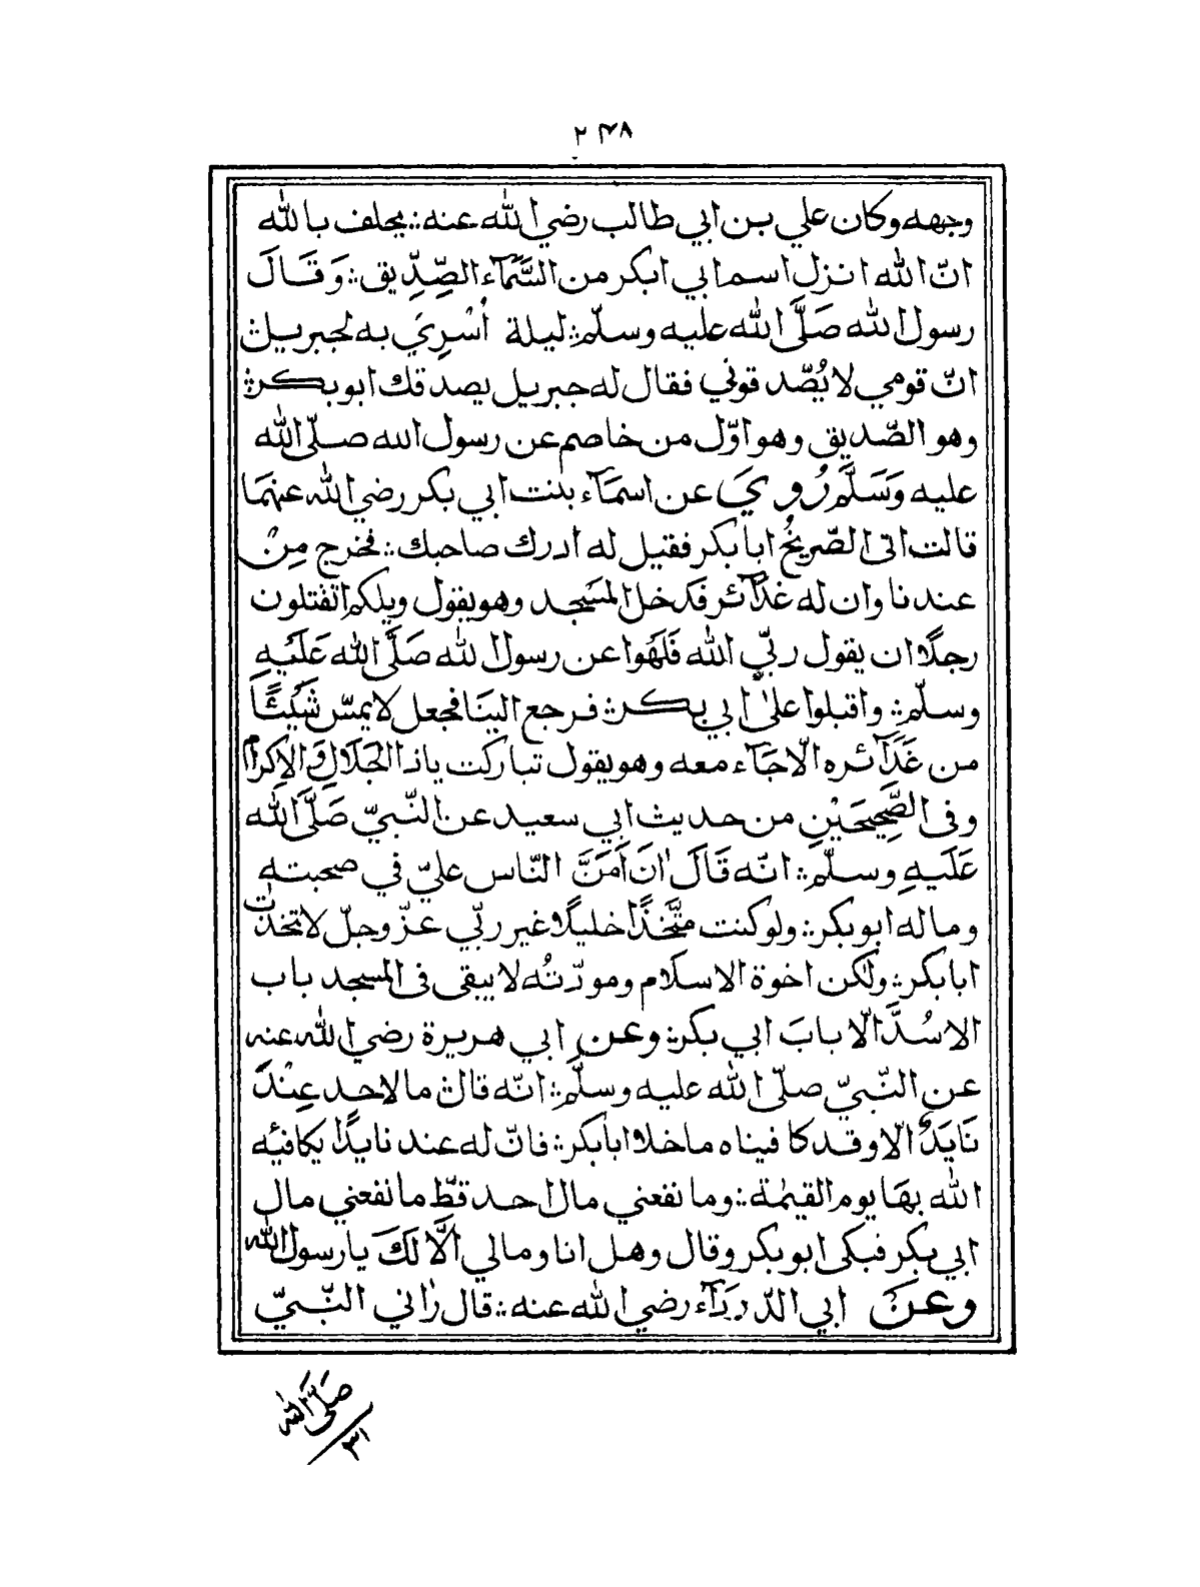 ٢٤٨
وجهه وكان علي بن ابي طالب رضي الله عنه ؞ يحلف بالله
انّ الله انزل اسم ابي ابكر من السَّمَآء الصِّدِّيق ؞ وَقَالَ
رسول الله صَلَّى الله عليه وسلّم ؞ ليلة أُسْرِيَ به لجبريل ؞
انّ قومي لا يُصّدقوني فقال له جبريل يصدقك ابو بكر ؞
وهو الصّديق وهو اوّل من خاصم عن رسول الله صلّى الله
عليه وَسَلَّم رُوِيَ عن اسمَآء بنت ابي بكر رضي الله عنهمَا
قالت اتى الصّريخُ ابا بكر فقيل له ادرك صاحبك ؞ فخرج مِنْ
عندنا وان له غدَآئر فَدخل المَسَجد وهو يقول ويلكم اتقتلون
رجلًا ان يقول ربّي الله فَلَهَوا عن رسول الله صَلَّى الله عَلَيْهِ
وسلّم ؞ واقبلوا على ابي بكر ؞ فرجع الينَا فجعل لا يمسّ شَيْئًا
من غَدَآئره الّا جَآء معه وهو يقول تباركت ياذا الجَلَالِ وَالاِكرام
وفى الصَّحِيحَيْنِ من حديث ابي سعيد عن النّبيّ صَلَّى الله
عَلَيهِ وسلّم ؞ انّه قَالَ انّ اَمَنَّ النّاس عليّ في صحبته
وماله ابو بكر ؞ ولو كنت متَّخذًا خليلًا غير ربّي عزّ وجلّ لاتخذت
ابا بكر ؞ ولكن اخوة الاسلام ومودّتُه لا يبقى فى المسجد باب
الا سُدَّ الّا بابَ ابي بكر ؞ وعن ابي هريرة رضي الله عنه
عن النّبيّ صلّى الله عليه وسلّم ؞ انّه قال ؞ ما لاحد عِنْدَ
نَا يَدٌ الّا وقد كافيناه ما خلا ابا بكر ؞ فانّ له عندنا يدًا يكافيئه
الله بهَا يوم القيٰمة ؞ وما نفعني مال احد قطّ ما نفعني مال
ابي بكر فبكى ابو بكر وقال وهل انا ومالي الَّا لَكَ يا رسول الله
وعن ابي الدّردَآء رضي الله عنه ؞ قال رٰاني النّبيّ
صَلَّى الله
٣١